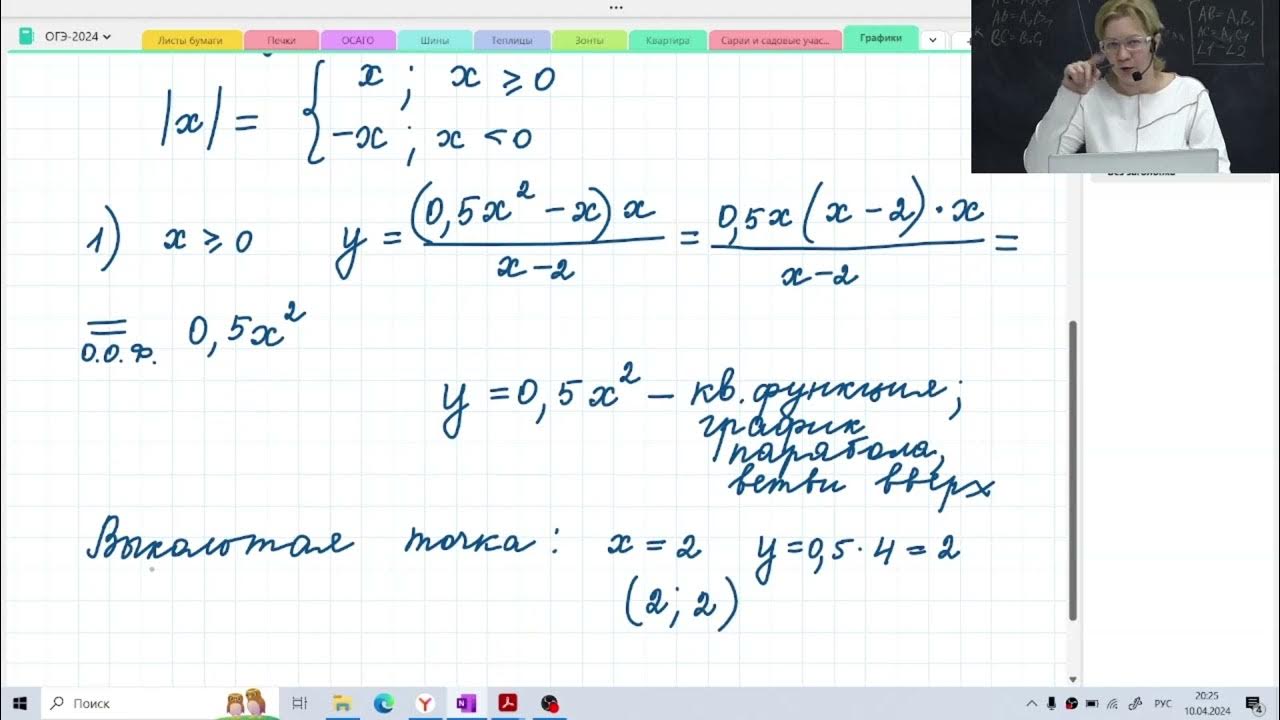 ОГЭ-2024
Листы бумаги
Печки
ОСАГО
Шины
Теплицы
Зонты
Квартира
Сараи и садовые учас...
Графики
|x| = { x ; x ≥ 0
-x ; x < 0
1) x ≥ 0 y = (0,5x² - x) x / x - 2 = 0,5x (x - 2) · x / x - 2 =
= О.О.Ф. 0,5x²
y = 0,5x² - кв. функция;
график
парабола,
ветви вверх
Выколотая точка: x = 2 y = 0,5 · 4 = 2
(2; 2)
Поиск
РУС
20:25
10.04.2024
4